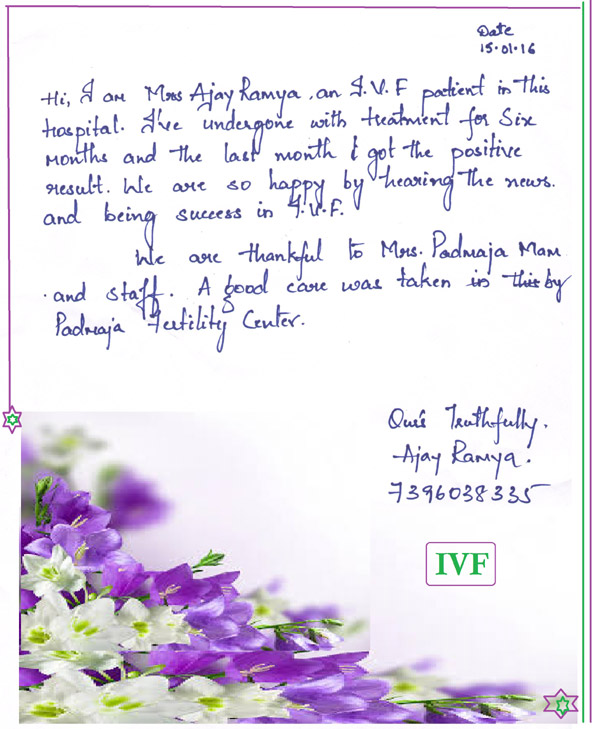 Date
15.01.16
Hi, I am Mrs Ajay Ramya, an I.V.F patient in this
Hospital. I've undergone with treatment for Six
Months and the last month I got the positive
result. We are so happy by hearing the news.
and being success in I.V.F.
We are thankful to Mrs. Padmaja Mam
and staff. A good care was taken in this by
Padmaja Fertility Center.
Truthfully.
Ajay Ramya.
7396038335
IVF